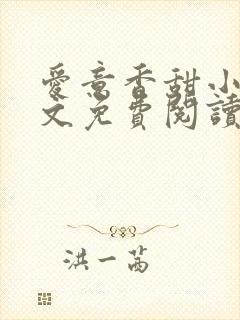 愛意香甜小
文免費閱讀
洪一茜